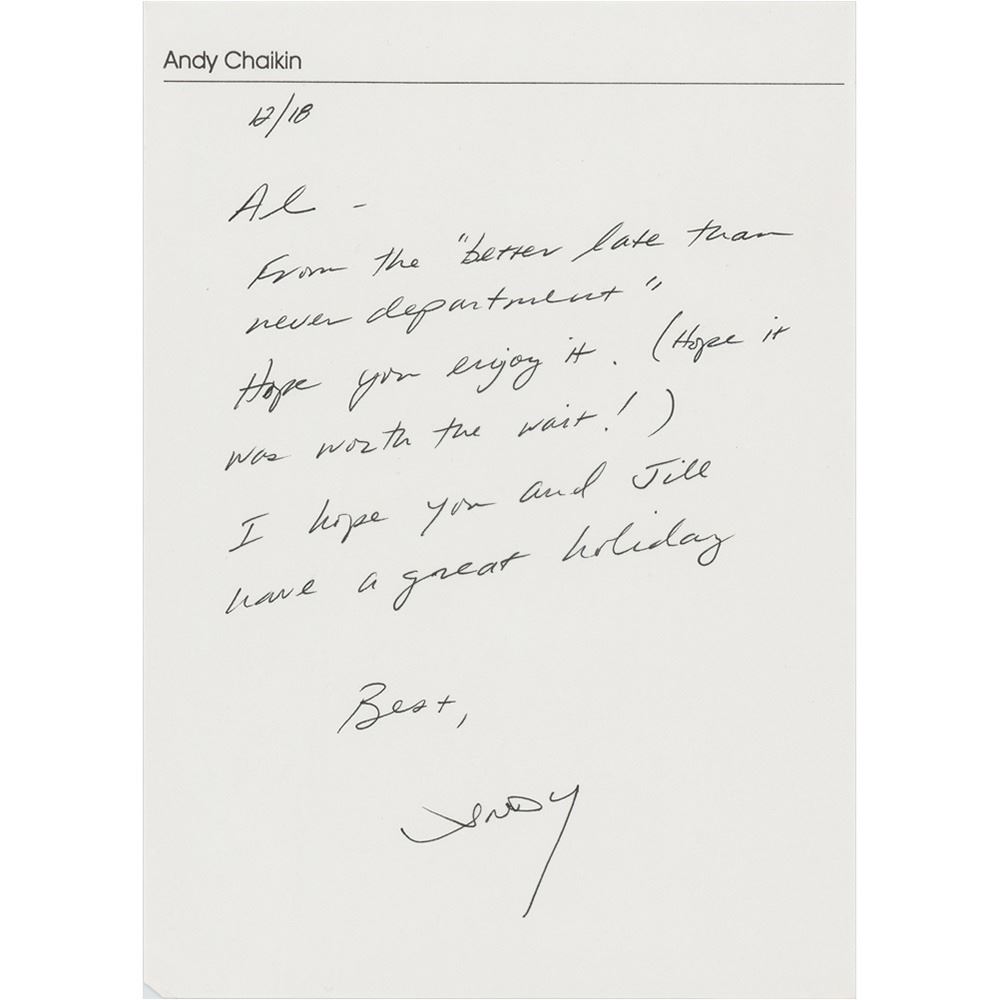 Andy Chaikin
12/18
Al -
From the "better late than
never department"
Hope you enjoy it. (Hope it
was worth the wait!)
I hope you and Jill
have a great holiday
Best,
Andy